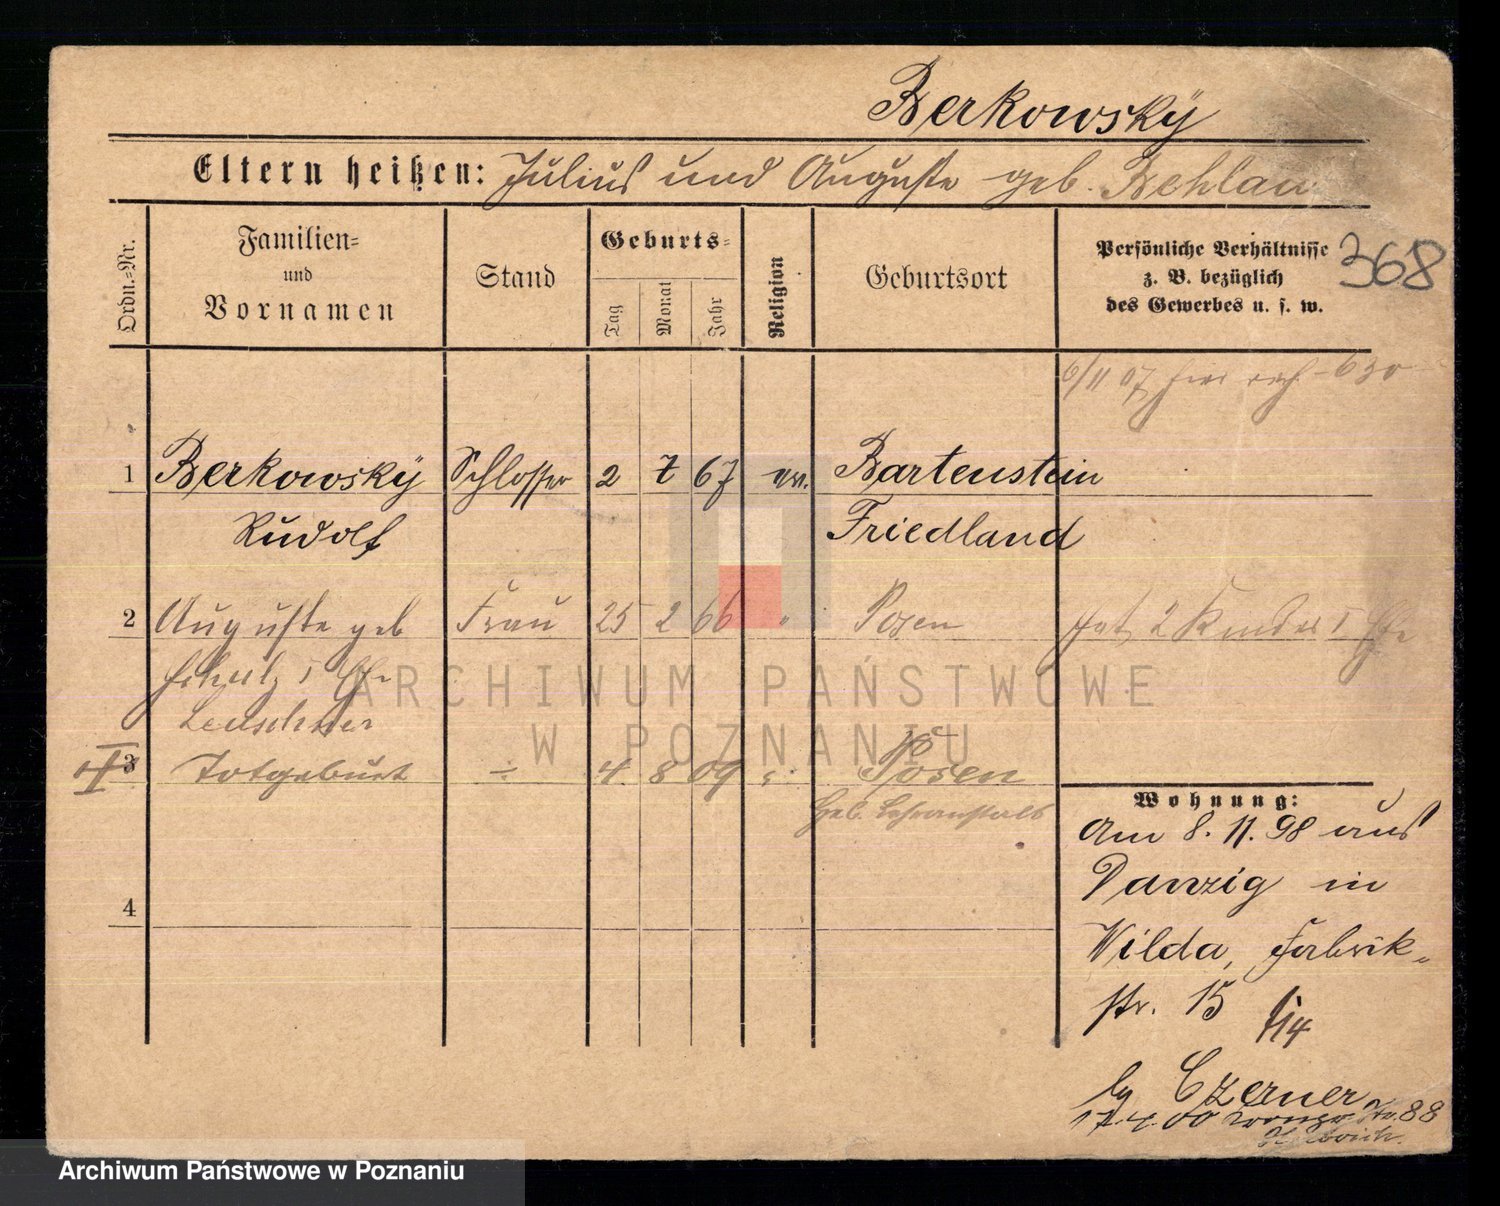 Berkowsky
Eltern heißen: Julius und Auguste geb. Behlau
Ordn.=Nr.
Familien=
und
Vornamen
Stand
Geburts=
Tag
Monat
Jahr
Religion
Geburtsort
Persönliche Verhältnisse
z. B. bezüglich
des Gewerbes u. s. w.
368
6/11 07
630
1 Berkowsky Schlosser 2 7 67 ev. Bartenstein
Rudolf Friedland
2 Auguste geb Frau 25 2 66 " Posen hat 2 Kinder I Ehe
Schulz I Ehe
Leuschner
3 Totgeburt ÷ 4 8 09 Posen
Geb. Lehranstalt
4
Wohnung:
Am 8. 11. 98 aus
Danzig in
Wilda, Fabrik-
str. 15
bei Czerner
17.4.00 88
ARCHIWUM PAŃSTWOWE
W POZNANIU
Archiwum Państwowe w Poznaniu